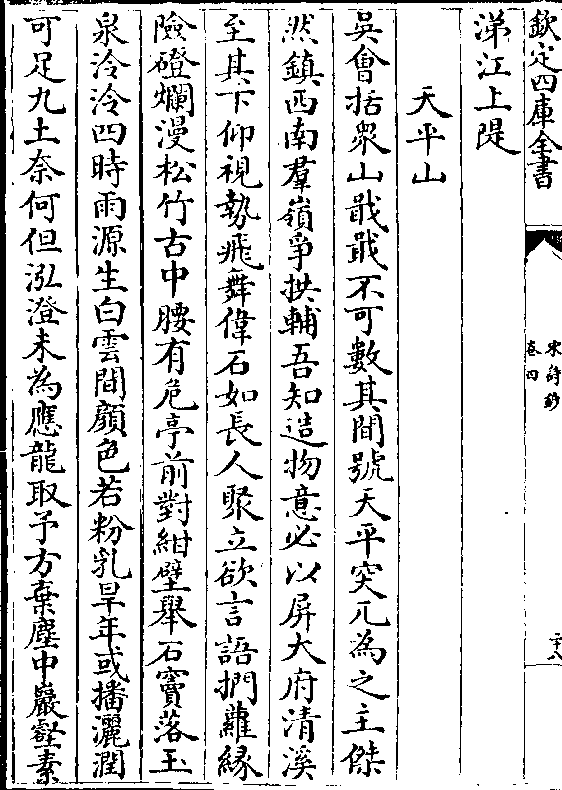 欽定四庫全書
宋詩鈔
卷四
二十八
涕江上隄
天平山
吳會括衆山戢戢不可數其間號天平突兀為之主傑
然鎮西南羣嶺爭拱輔吾知造物意必以屏大府清溪
至其下仰視勢飛舞偉石如長人聚立欲言語捫蘿縁
險磴爛漫松竹古中腰有危亭前對紺壁舉石竇落玉
泉泠泠四時雨源生白雲間顔色若粉乳旱年或播灑潤
可足九土奈何但泓澄未為應龍取予方棄塵中巖壑素